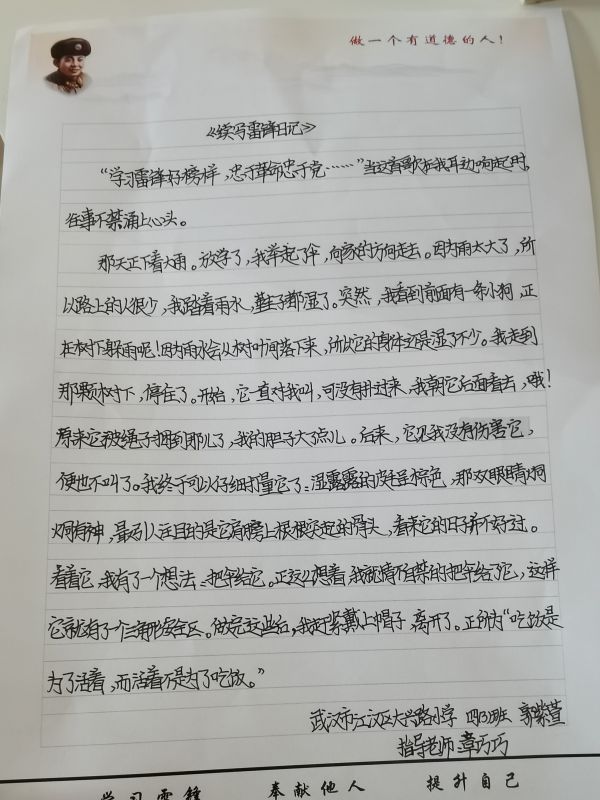 做一个有道德的人！
《续写雷锋日记》
“学习雷锋好榜样，忠于革命忠于党……”当这首歌在我耳边响起时，
往事不禁涌上心头。
那天正下着大雨。放学了，我举起了伞，向家的方向走去。因为雨太大了，所
以路上的人很少，我踏着雨水，鞋子都湿了。突然，我看到前面有一条小狗，正
在树下躲雨呢！因为雨水会从树叶间落下来，所以它的身体还是湿了不少。我走到
那颗树下，停住了。开始，它一直对我叫，可没有扑过来，我朝它后面看去，哦！
原来它被绳子捆到那儿了，我的胆子大了点儿。后来，它见我没有伤害它，
便也不叫了。我终于可以仔细打量它了：湿露露的皮毛呈棕色，那双眼睛炯
炯有神，最引人注目的是它肩膀上根根突起的骨头，看来它的日子并不好过。
看着它，我有了一个想法：把伞给它。正这么想着，我就情不自禁的把伞给了它，这样
它就有了一个三角形安全区。做完这些后，我赶紧戴上帽子，离开了。正所为“吃饭是
为了活着，而活着不是为了吃饭。”
武汉市江汉区大兴路小学 四(3)班 郭紫萱
指导老师 章巧巧
学习雷锋 奉献他人 提升自己